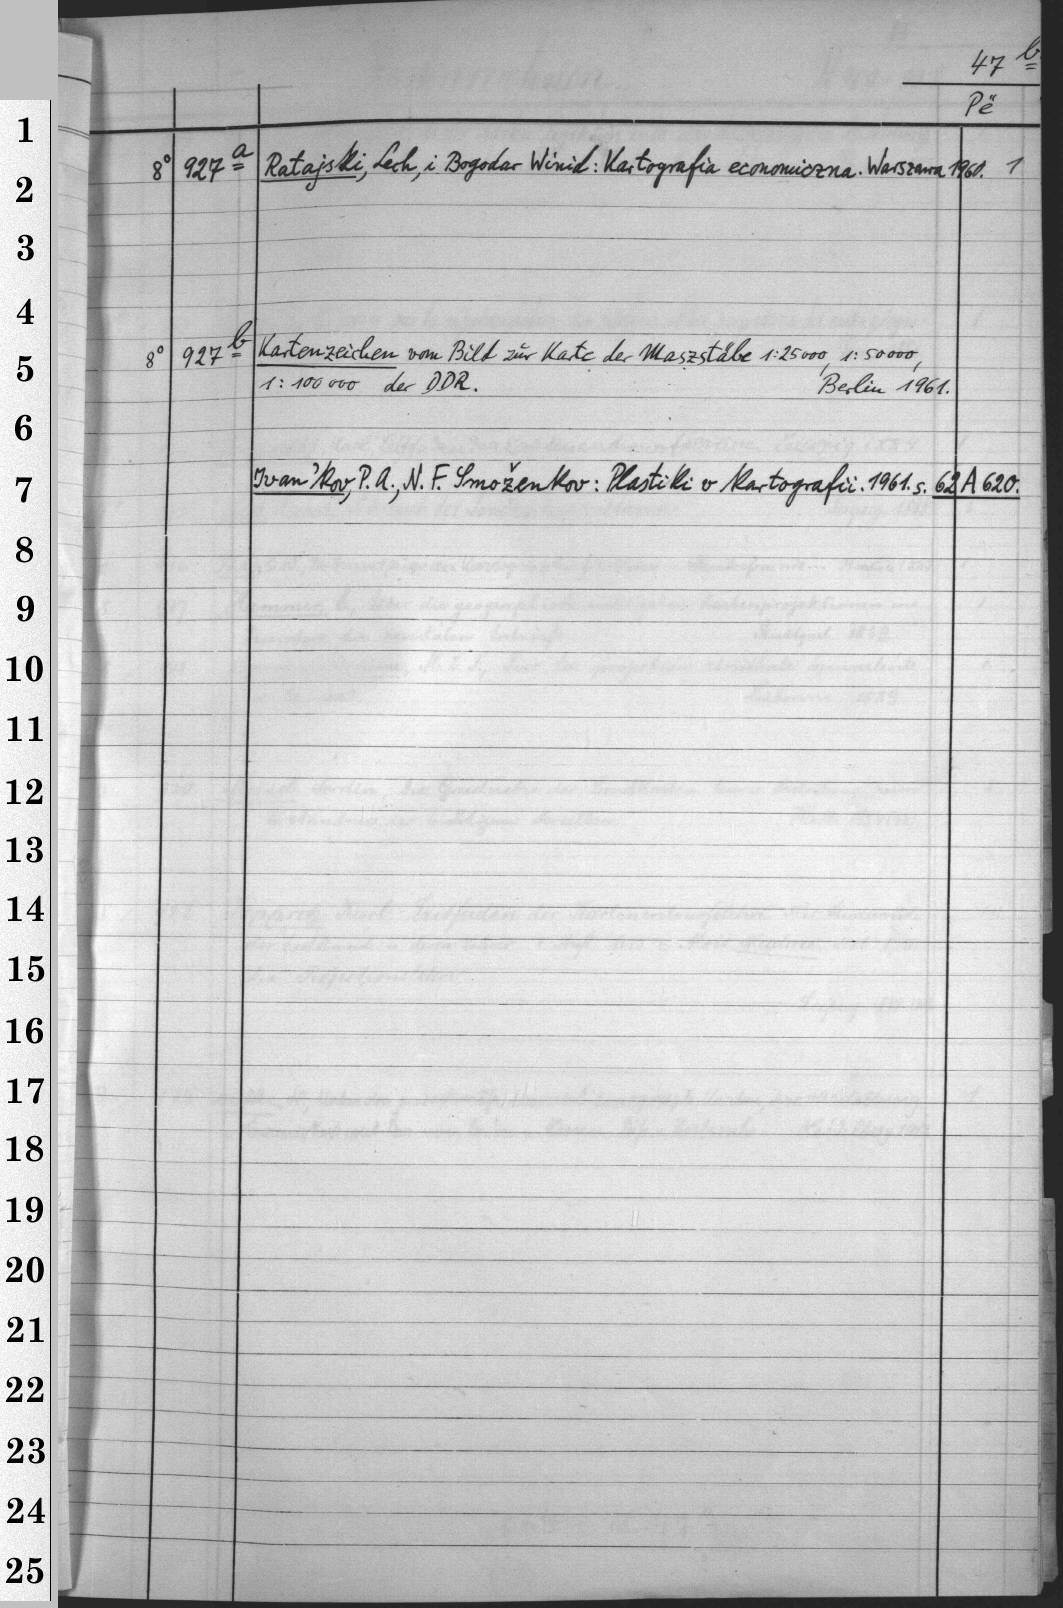 47 b
Pë
8° 927 a Ratajski, Lech, i Bogodar Winid: Kartografia economiczna. Warszawa 1960. 1
8° 927 b Kartenzeichen vom Bild zur Karte der Maszstäbe 1:25000, 1:50000,
1:100000 der DDR. Berlin 1961.
Ivan'kov, P. A., N. F. Smoženkov: Plastiki v kartografii. 1961. s. 62 A 620.
1
2
3
4
5
6
7
8
9
10
11
12
13
14
15
16
17
18
19
20
21
22
23
24
25